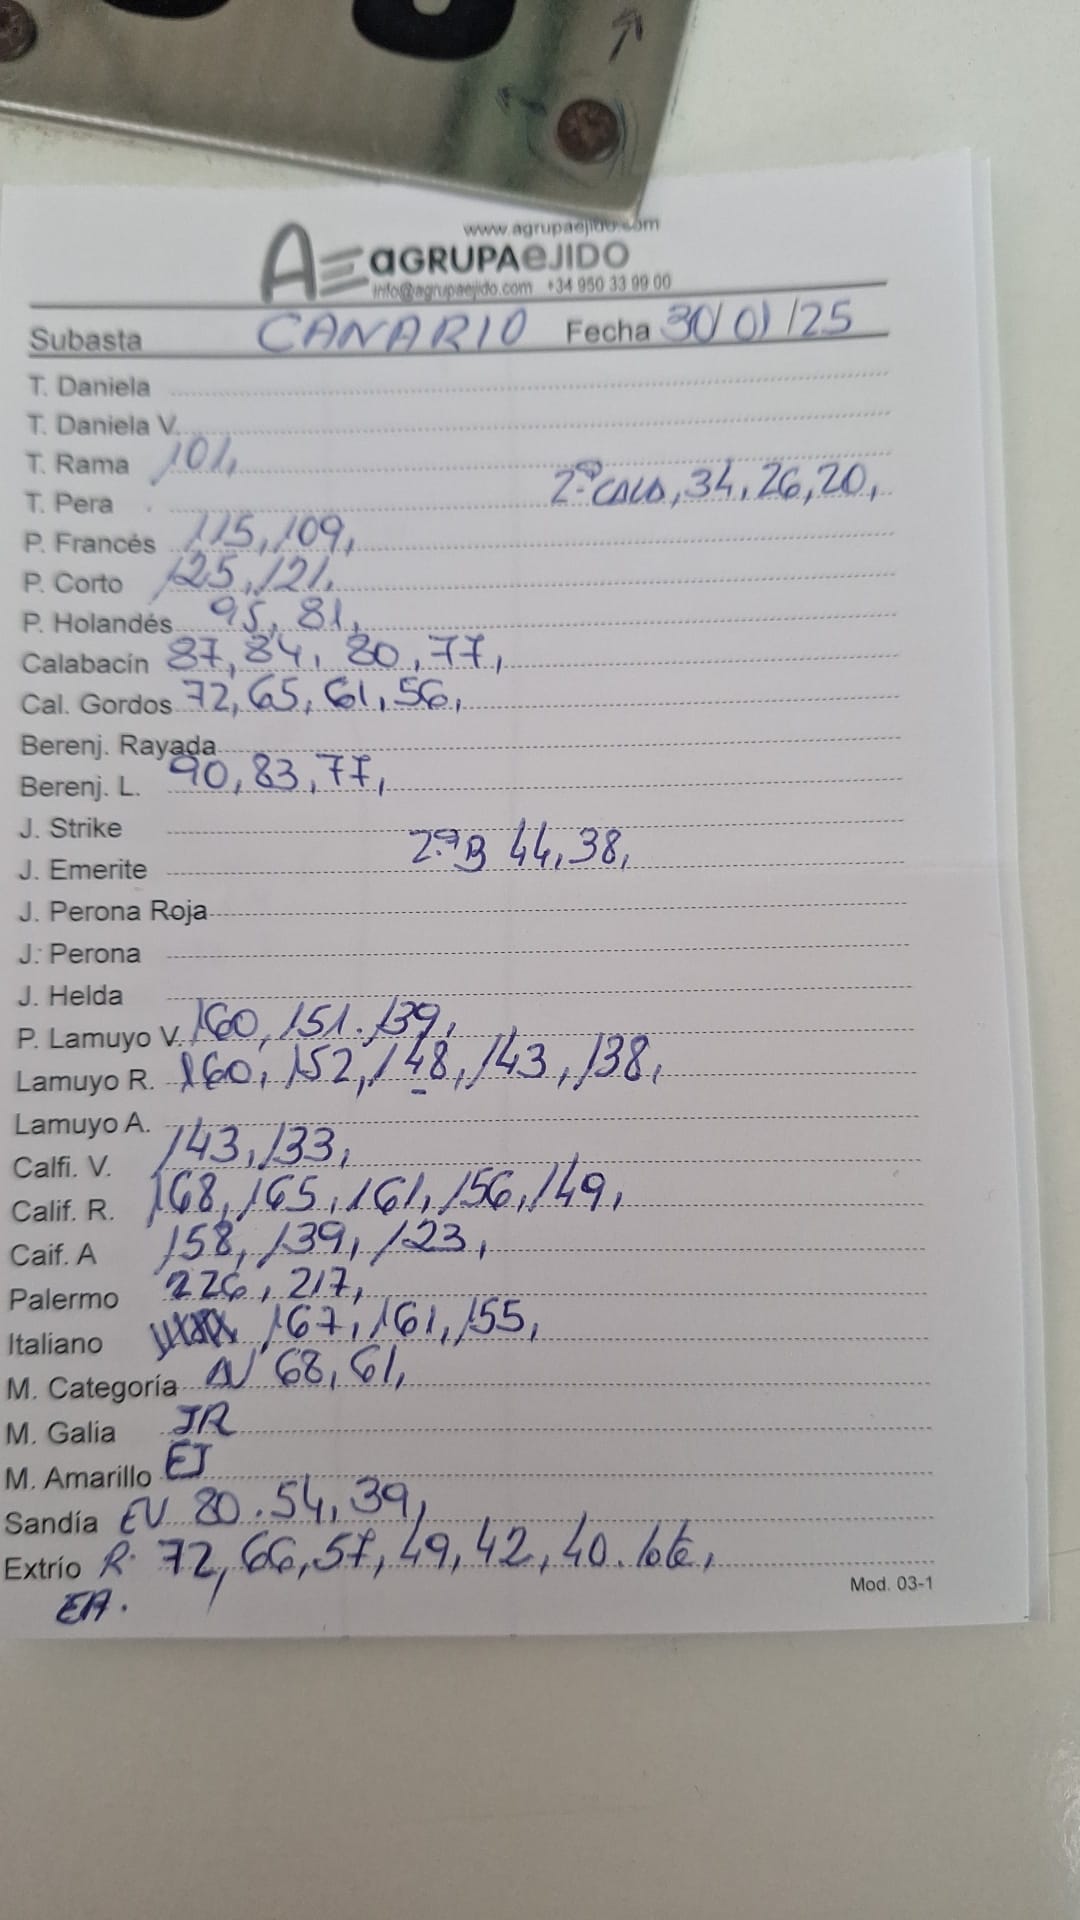 www.agrupaejido.com
AGRUPAEJIDO
info@agrupaejido.com +34 950 33 99 00
Subasta CANARIO Fecha 30/01/25
T. Daniela
T. Daniela V.
T. Rama 101,
T. Pera 2.ª CALA, 34, 26, 20,
P. Francés 115, 109,
P. Corto 125, 121,
P. Holandés 95, 81,
Calabacín 87, 84, 80, 77,
Cal. Gordos 72, 65, 61, 56,
Berenj. Rayada
Berenj. L. 90, 83, 77,
J. Strike
J. Emerite 2.ª B 44, 38,
J. Perona Roja
J. Perona
J. Helda
P. Lamuyo V. 160, 151. 139,
Lamuyo R. 160, 152, 148, 143, 138,
Lamuyo A.
Calfi. V. 143, 133,
Calif. R. 168, 165, 161, 156, 149,
Caif. A 158, 139, 123,
Palermo 226, 217,
Italiano 167, 161, 155,
M. Categoría AV 68, 61,
M. Galia JR
M. Amarillo EJ
Sandía EV 80. 54, 39,
Extrío R. 72, 66, 57, 49, 42, 40.
EA.
Mod. 03-1